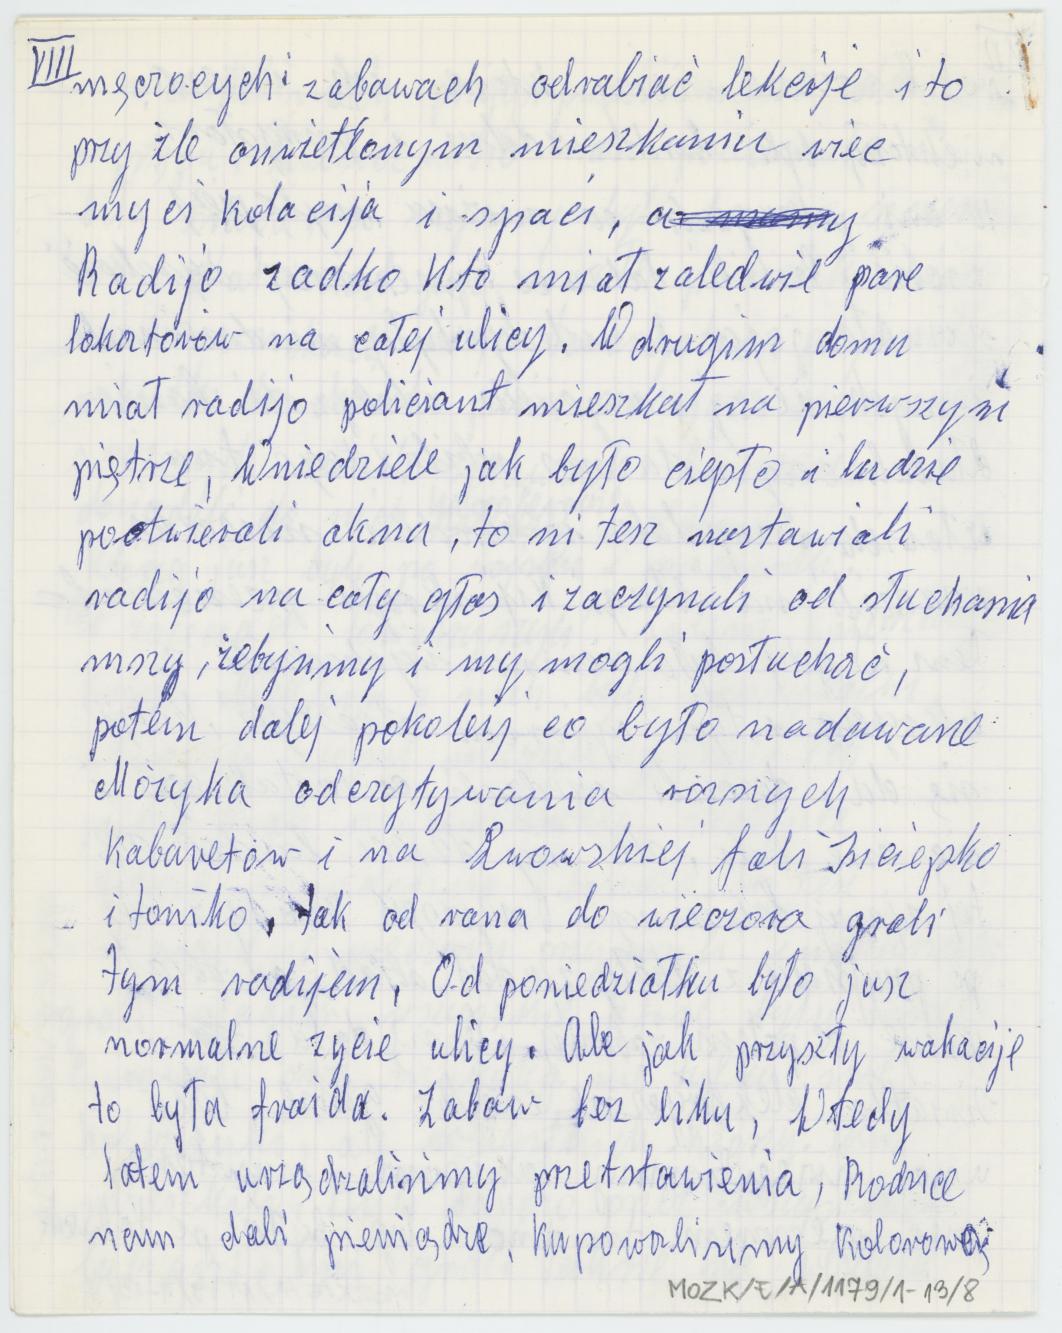 VIII
męczocych zabawach odrabiać lekcije i to
przy źle oświetlonym mieszkaniu wiec
myci kolacija i spaci, a
Radijo zadko kto miał zaledwie pare
lokatorów na całej ulicy. W drugim domu
miał radijo policiant mieszkał na pierwszym
piętrze, Wniedziele jak było ciepło i ludzie
pootwierali okna, to ni tesz nastawiali
radijo na cały głos i zaczynali od słuchania
mszy, żebyśmy i my mogli posłuchać,
potem dalej pokoleij co było nadawane
Mózyka odczytywania rózsnych
Kabaretów i na Lwowskiej fali Sciepko
i tońko. tak od rana do wieczora grali
tym radijem, Od poniedziałku było jusz
normalne zycie ulicy. Ale jak przyszły wakacije
to była frajda. Zabaw bez liku, Wtedy
latem urządzaliśmy przetstawienia, Rodzice
nam dali pieniądze, kupowaliśmy kolorową
MOZK/E/A/1179/1-13/8